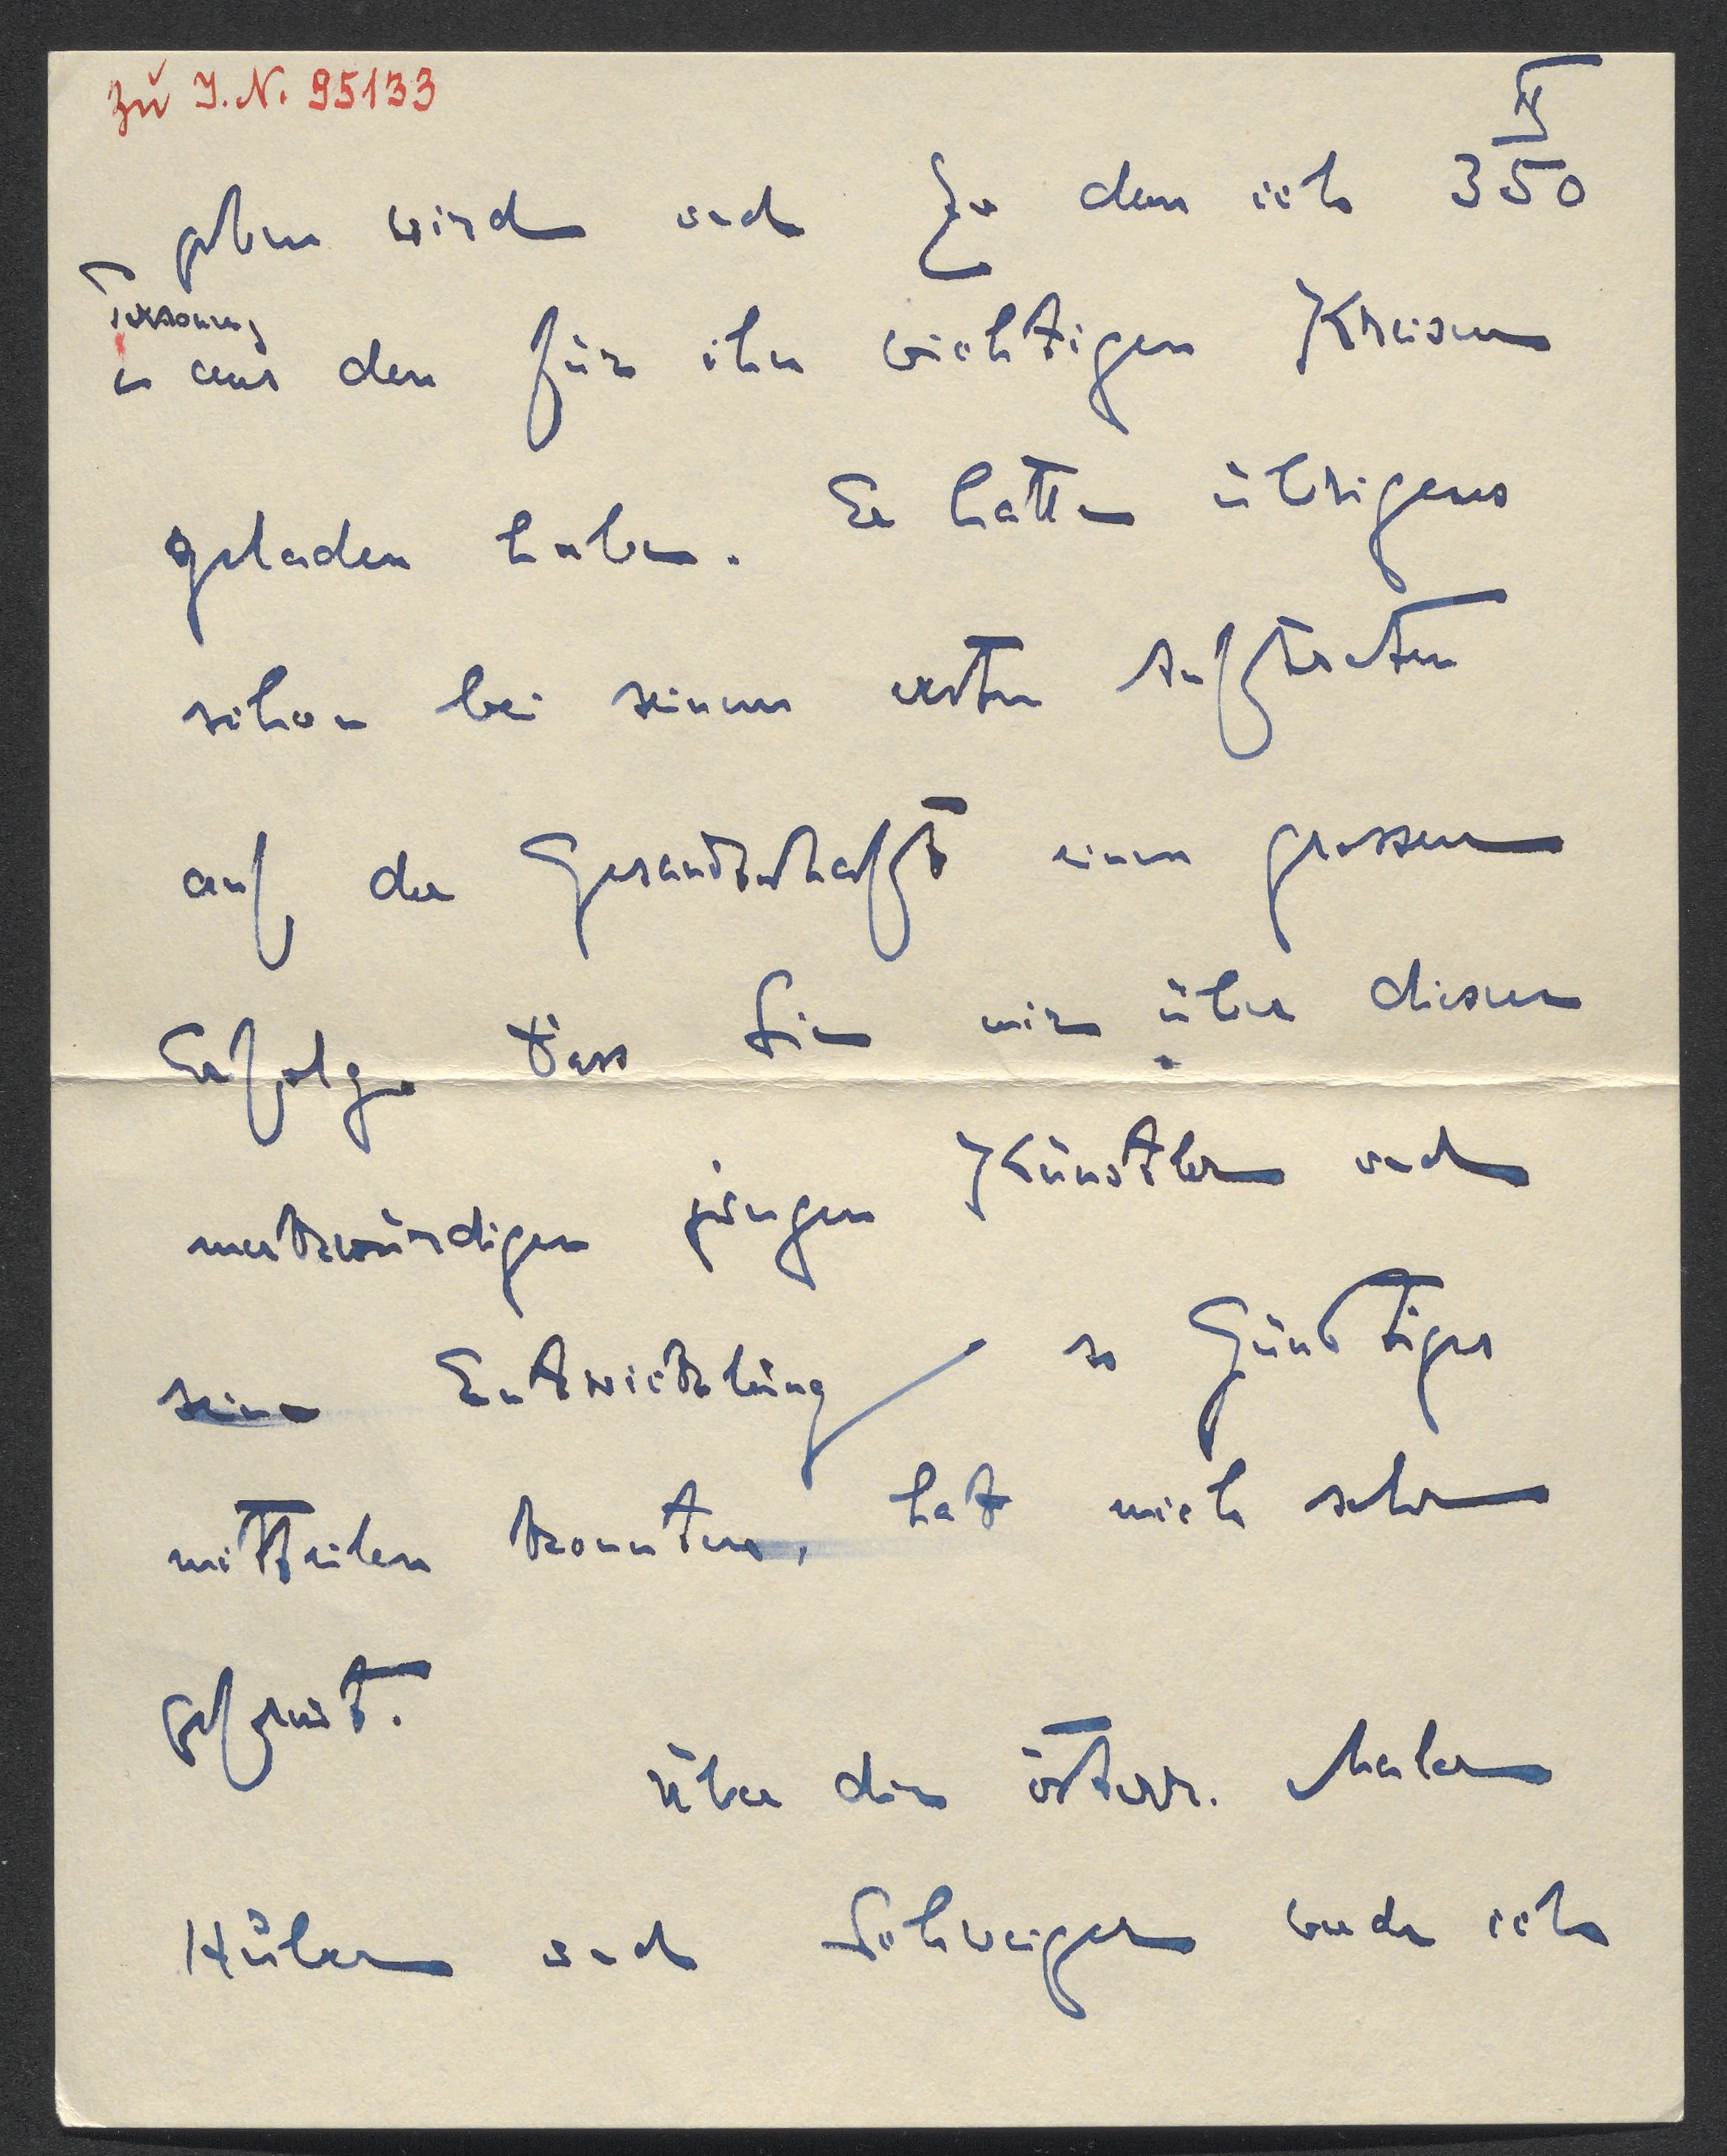 zu I.N. 95133
II
geben wird und zu dem ich 350
Personen
aus den für ihn wichtigen Kreisen
geladen habe. Er hatte übrigens
schon bei seinem ersten Auftreten
auf der Gesandtschaft einen grossen
Erfolg. Dass Sie mir über diesen
merkwürdigen jungen Künstler und
seine Entwicklung so Günstiges
mitteilen konnten, hat mich sehr
gefreut.
Über die österr. Maler
Huber und Schweiger werde ich